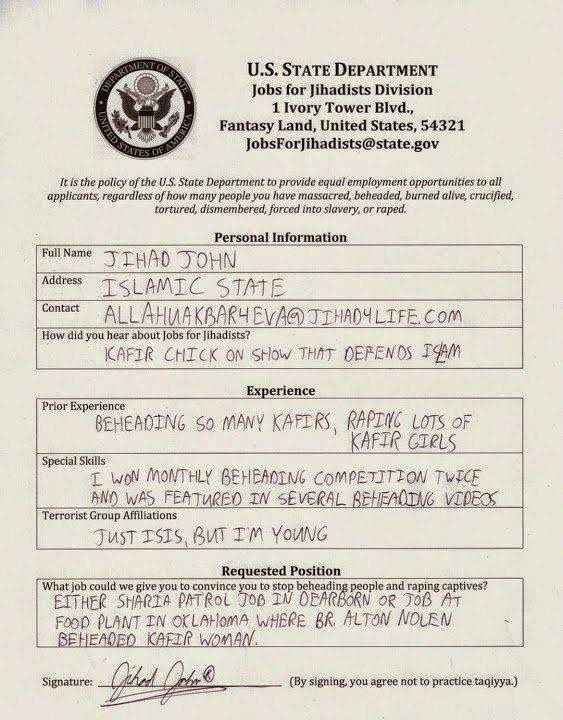 DEPARTMENT OF STATE
UNITED STATES OF AMERICA
U.S. STATE DEPARTMENT
Jobs for Jihadists Division
1 Ivory Tower Blvd.,
Fantasy Land, United States, 54321
JobsForJihadists@state.gov
It is the policy of the U.S. State Department to provide equal employment opportunities to all
applicants, regardless of how many people you have massacred, beheaded, burned alive, crucified,
tortured, dismembered, forced into slavery, or raped.
Personal Information
Full Name JIHAD JOHN
Address ISLAMIC STATE
Contact ALLAHUAKBAR4EVA@JIHAD4LIFE.COM
How did you hear about Jobs for Jihadists?
KAFIR CHICK ON SHOW THAT DEFENDS ISLAM
Experience
Prior Experience
BEHEADING SO MANY KAFIRS, RAPING LOTS OF
KAFIR GIRLS
Special Skills
I WON MONTHLY BEHEADING COMPETITION TWICE
AND WAS FEATURED IN SEVERAL BEHEADING VIDEOS
Terrorist Group Affiliations
JUST ISIS, BUT I'M YOUNG
Requested Position
What job could we give you to convince you to stop beheading people and raping captives?
EITHER SHARIA PATROL JOB IN DEARBORN OR JOB AT
FOOD PLANT IN OKLAHOMA WHERE BR. ALTON NOLEN
BEHEADED KAFIR WOMAN.
Signature: Jihad John® (By signing, you agree not to practice taqiyya.)